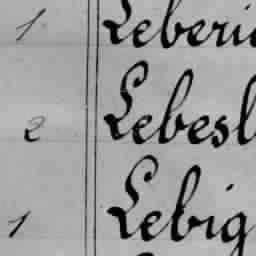 1 Leberic
2 Lebesl
1 Lebig